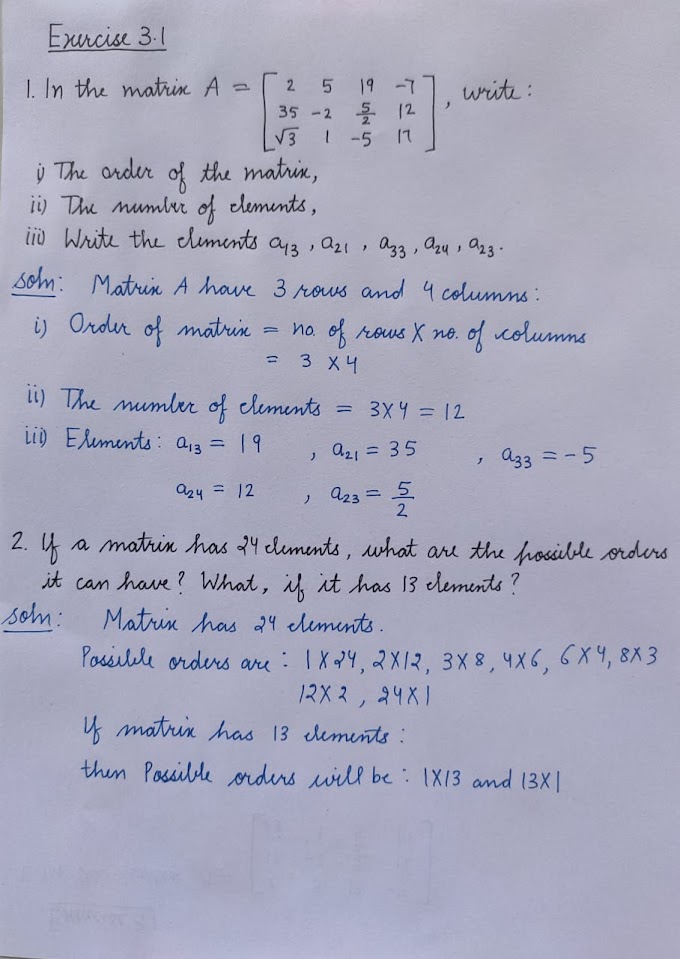 Exercise 3.1
1. In the matrix A = [ 2 5 19 -7
35 -2 5/2 12
√3 1 -5 17 ], write:
i) The order of the matrix,
ii) The number of elements,
iii) Write the elements a13, a21, a33, a24, a23.
Soln: Matrix A have 3 rows and 4 columns:
i) Order of matrix = no. of rows X no. of columns
= 3 X 4
ii) The number of elements = 3X4 = 12
iii) Elements: a13 = 19 , a21 = 35 , a33 = -5
a24 = 12 , a23 = 5/2
2. If a matrix has 24 elements, what are the possible orders
it can have? What, if it has 13 elements?
Soln: Matrix has 24 elements.
Possible orders are: 1X24, 2X12, 3X8, 4X6, 6X4, 8X3
12X2, 24X1
If matrix has 13 elements:
then Possible orders will be: 1X13 and 13X1